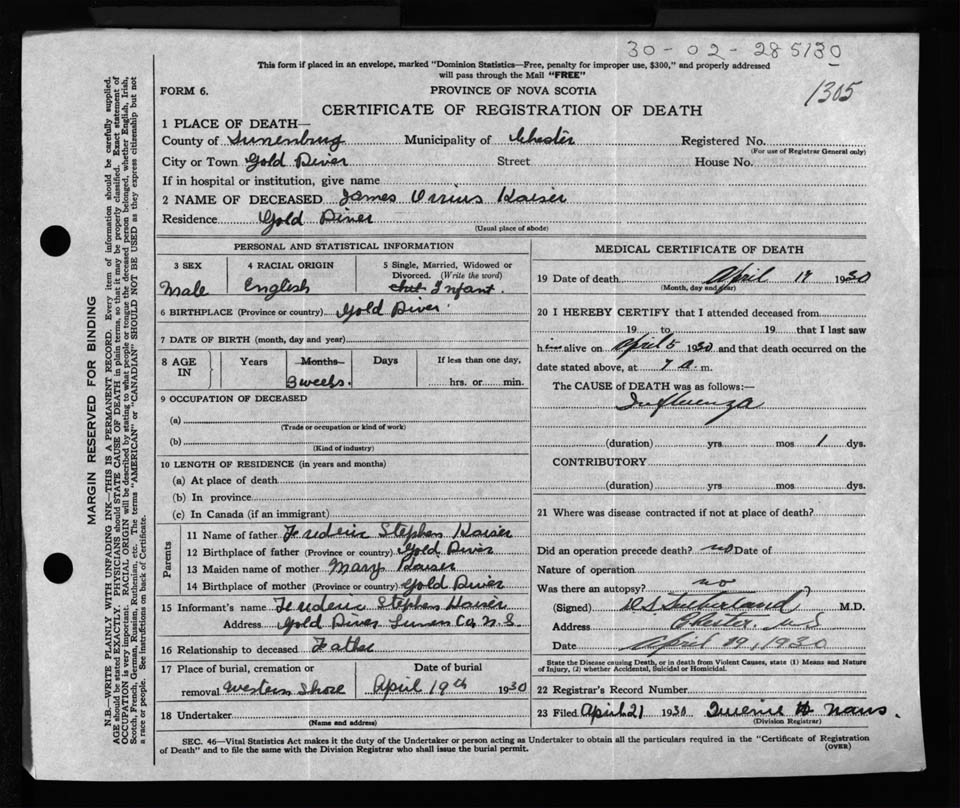 30-02-285130
This form if placed in an envelope, marked "Dominion Statistics—Free, penalty for improper use, $300," and properly addressed
will pass through the Mail "FREE"
1305
FORM 6.
PROVINCE OF NOVA SCOTIA
CERTIFICATE OF REGISTRATION OF DEATH
1 PLACE OF DEATH—
County of Lunenburg Municipality of Chester Registered No.
(For use of Registrar General only)
City or Town Gold River Street House No.
If in hospital or institution, give name
2 NAME OF DECEASED James Kaiser
Residence Gold River
(Usual place of abode)
PERSONAL AND STATISTICAL INFORMATION
3 SEX 4 RACIAL ORIGIN 5 Single, Married, Widowed or Divorced. (Write the word)
Male English Infant.
6 BIRTHPLACE (Province or country) Gold River
7 DATE OF BIRTH (month, day and year)
8 AGE IN Years Months Days If less than one day,
3 weeks. hrs. or min.
9 OCCUPATION OF DECEASED
(a)
(Trade or occupation or kind of work)
(b)
(Kind of industry)
10 LENGTH OF RESIDENCE (in years and months)
(a) At place of death
(b) In province
(c) In Canada (if an immigrant)
Parents
11 Name of father Frederic Stephen Kaiser
12 Birthplace of father (Province or country) Gold River
13 Maiden name of mother Mary Kaiser
14 Birthplace of mother (Province or country) Gold River
15 Informant's name Frederic Stephen Kaiser
Address Gold River Lunen Co, N.S.
16 Relationship to deceased Father
17 Place of burial, cremation or removal Western Shore
Date of burial April 19th 1930
18 Undertaker
(Name and address)
MEDICAL CERTIFICATE OF DEATH
19 Date of death April 19 1930
(Month, day and year)
20 I HEREBY CERTIFY that I attended deceased from
19 to 19 that I last saw
him alive on April 5 1930 and that death occurred on the
date stated above, at 7 a. m.
The CAUSE OF DEATH was as follows:—
Influenza
(duration) yrs. mos 1 dys.
CONTRIBUTORY
(duration) yrs. mos dys.
21 Where was disease contracted if not at place of death?
Did an operation precede death? no Date of
Nature of operation
Was there an autopsy? no
(Signed) Sutherland M.D.
Address Chester, N.S
Date April 19, 1930
State the Disease causing Death, or in death from Violent Causes, state (1) Means and Nature
of Injury, (2) whether Accidental, Suicidal or Homicidal.
22 Registrar's Record Number
23 Filed April 21 1930
(Division Registrar)
SEC. 46—Vital Statistics Act makes it the duty of the Undertaker or person acting as Undertaker to obtain all the particulars required in the "Certificate of Registration
of Death" and to file the same with the Division Registrar who shall issue the burial permit.
(OVER)
MARGIN RESERVED FOR BINDING
N.B.—WRITE PLAINLY WITH UNFADING INK—THIS IS A PERMANENT RECORD. Every item of information should be carefully supplied.
AGE should be stated EXACTLY. PHYSICIANS should STATE CAUSE OF DEATH in plain terms, so that it may be properly classified. Exact statement of
OCCUPATION is very important. RACIAL ORIGIN will be described by stating to what people or tongue the deceased person belonged, whether English, Irish,
Scotch, French, German, Russian, Ruthenian, etc. The terms "AMERICAN" or "CANADIAN" SHOULD NOT BE USED as they express citizenship but not
a race or people. See instructions on back of Certificate.